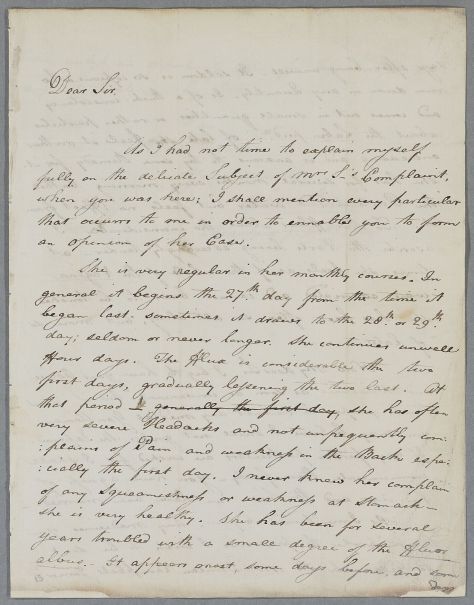 Dear Sir.
As I had not time to explain myself
fully on the delicate Subject of Mrs S—'s Complaint,
when you was here; I shall mention every particular
that occurrs to me in order to ennable you to form
an opinion of her Case.
She is very regular in her monthly courses. In
general it begins the 27th day from the time it
began last. sometimes it draws to the 28th or 29th
day; seldom or never longer. She continues unwell
ffour days. The fflux is considerable the two
first days, gradually lessening the two last. At
that period generally the first day, she has often
very severe Headachs and not unfrequently com-
:plains of Pain and weakness in the Back espe-
:cially the first day. I never knew her complain
of any Squeamishness or weakness at Stomach —
She is very healthy. She has been for several
years troubled with a small degree of the ffluor
albus. It appears most, some days before, and some
days